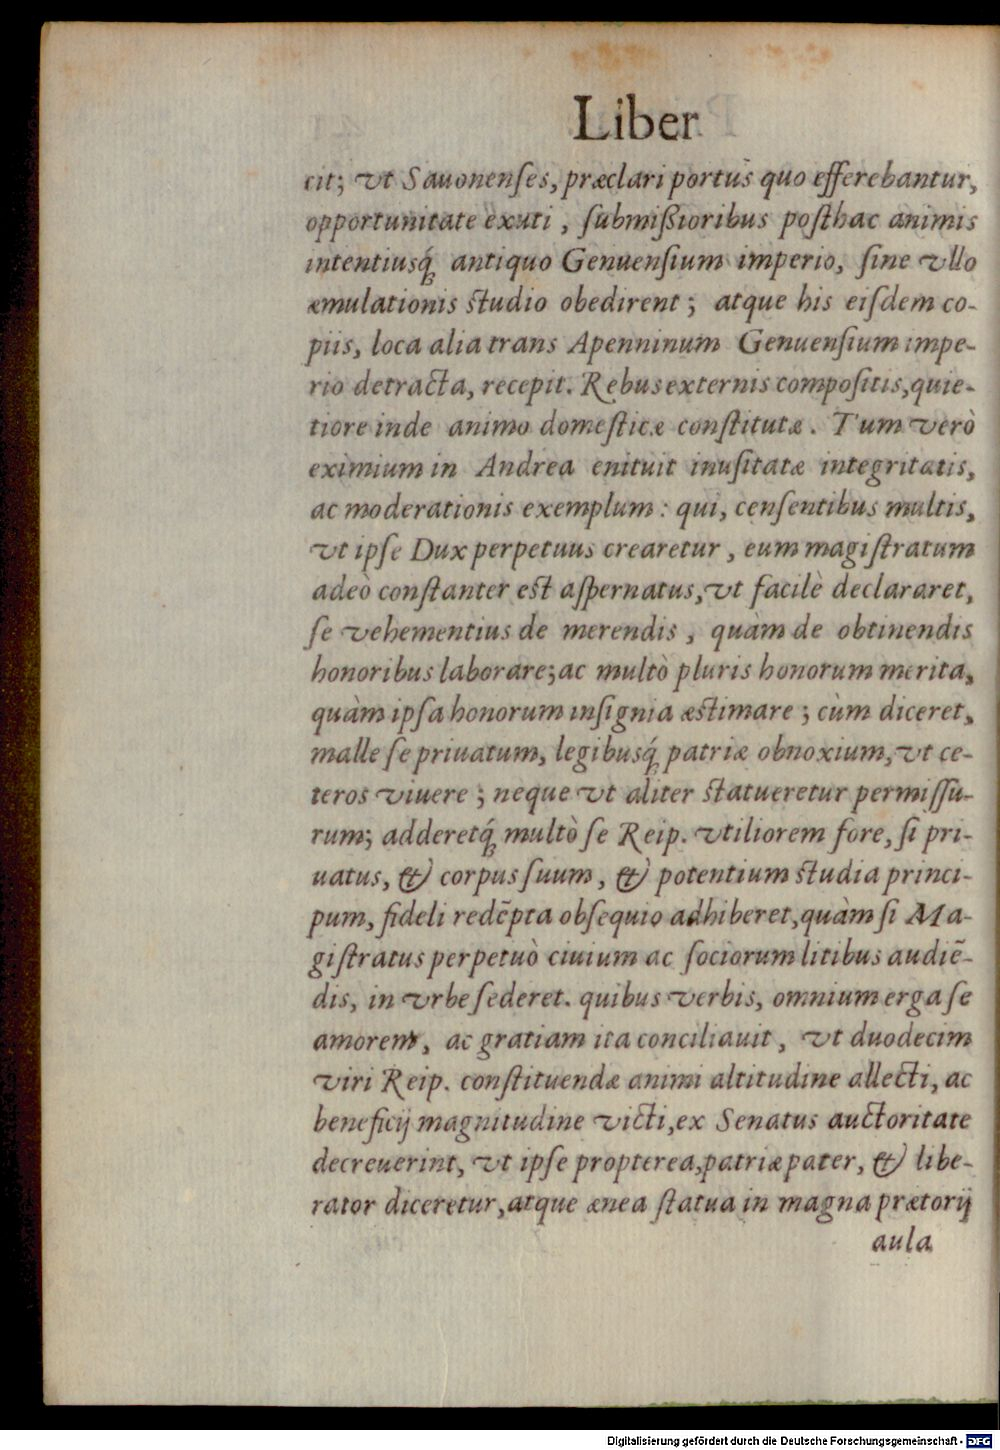 Liber
cit; vt Sauonenſes, præclari portus quo efferebantur,
opportunitate exuti, ſubmißioribus poſthac animis
intentiusq́; antiquo Genuenſium imperio, ſine vllo
æmulationis ſtudio obedirent; atque his eiſdem co-
piis, loca alia trans Apenninum Genuenſium impe-
rio detracta, recepit. Rebus externis compoſitis, quie-
tiore inde animo domeſticæ conſtitutæ. Tum verò
eximium in Andrea enituit inuſitatæ integritatis,
ac moderationis exemplum: qui, cenſentibus multis,
vt ipſe Dux perpetuus crearetur, eum magiſtratum
adeò conſtanter eſt aſpernatus, vt facilè declararet,
ſe vehementius de merendis, quàm de obtinendis
honoribus laborare; ac multò pluris honorum merita,
quàm ipſa honorum inſignia æſtimare; cùm diceret,
malle ſe priuatum, legibusq́; patriæ obnoxium, vt ce-
teros viuere; neque vt aliter ſtatueretur permiſſu-
rum; adderetq́; multò ſe Reip. vtiliorem fore, ſi pri-
uatus, & corpus ſuum, & potentium ſtudia princi-
pum, fideli redẽpta obſequio adhiberet, quàm ſi Ma-
giſtratus perpetuò ciuium ac ſociorum litibus audiẽ-
dis, in vrbe ſederet. quibus verbis, omnium erga ſe
amorem, ac gratiam ita conciliauit, vt duodecim
viri Reip. conſtituendæ animi altitudine allecti, ac
beneficij magnitudine victi, ex Senatus auctoritate
decreuerint, vt ipſe propterea, patriæ pater, & libe-
rator diceretur, atque ænea ſtatua in magna prætorij
aula
Digitalisierung gefördert durch die Deutsche Forschungsgemeinschaft - DFG